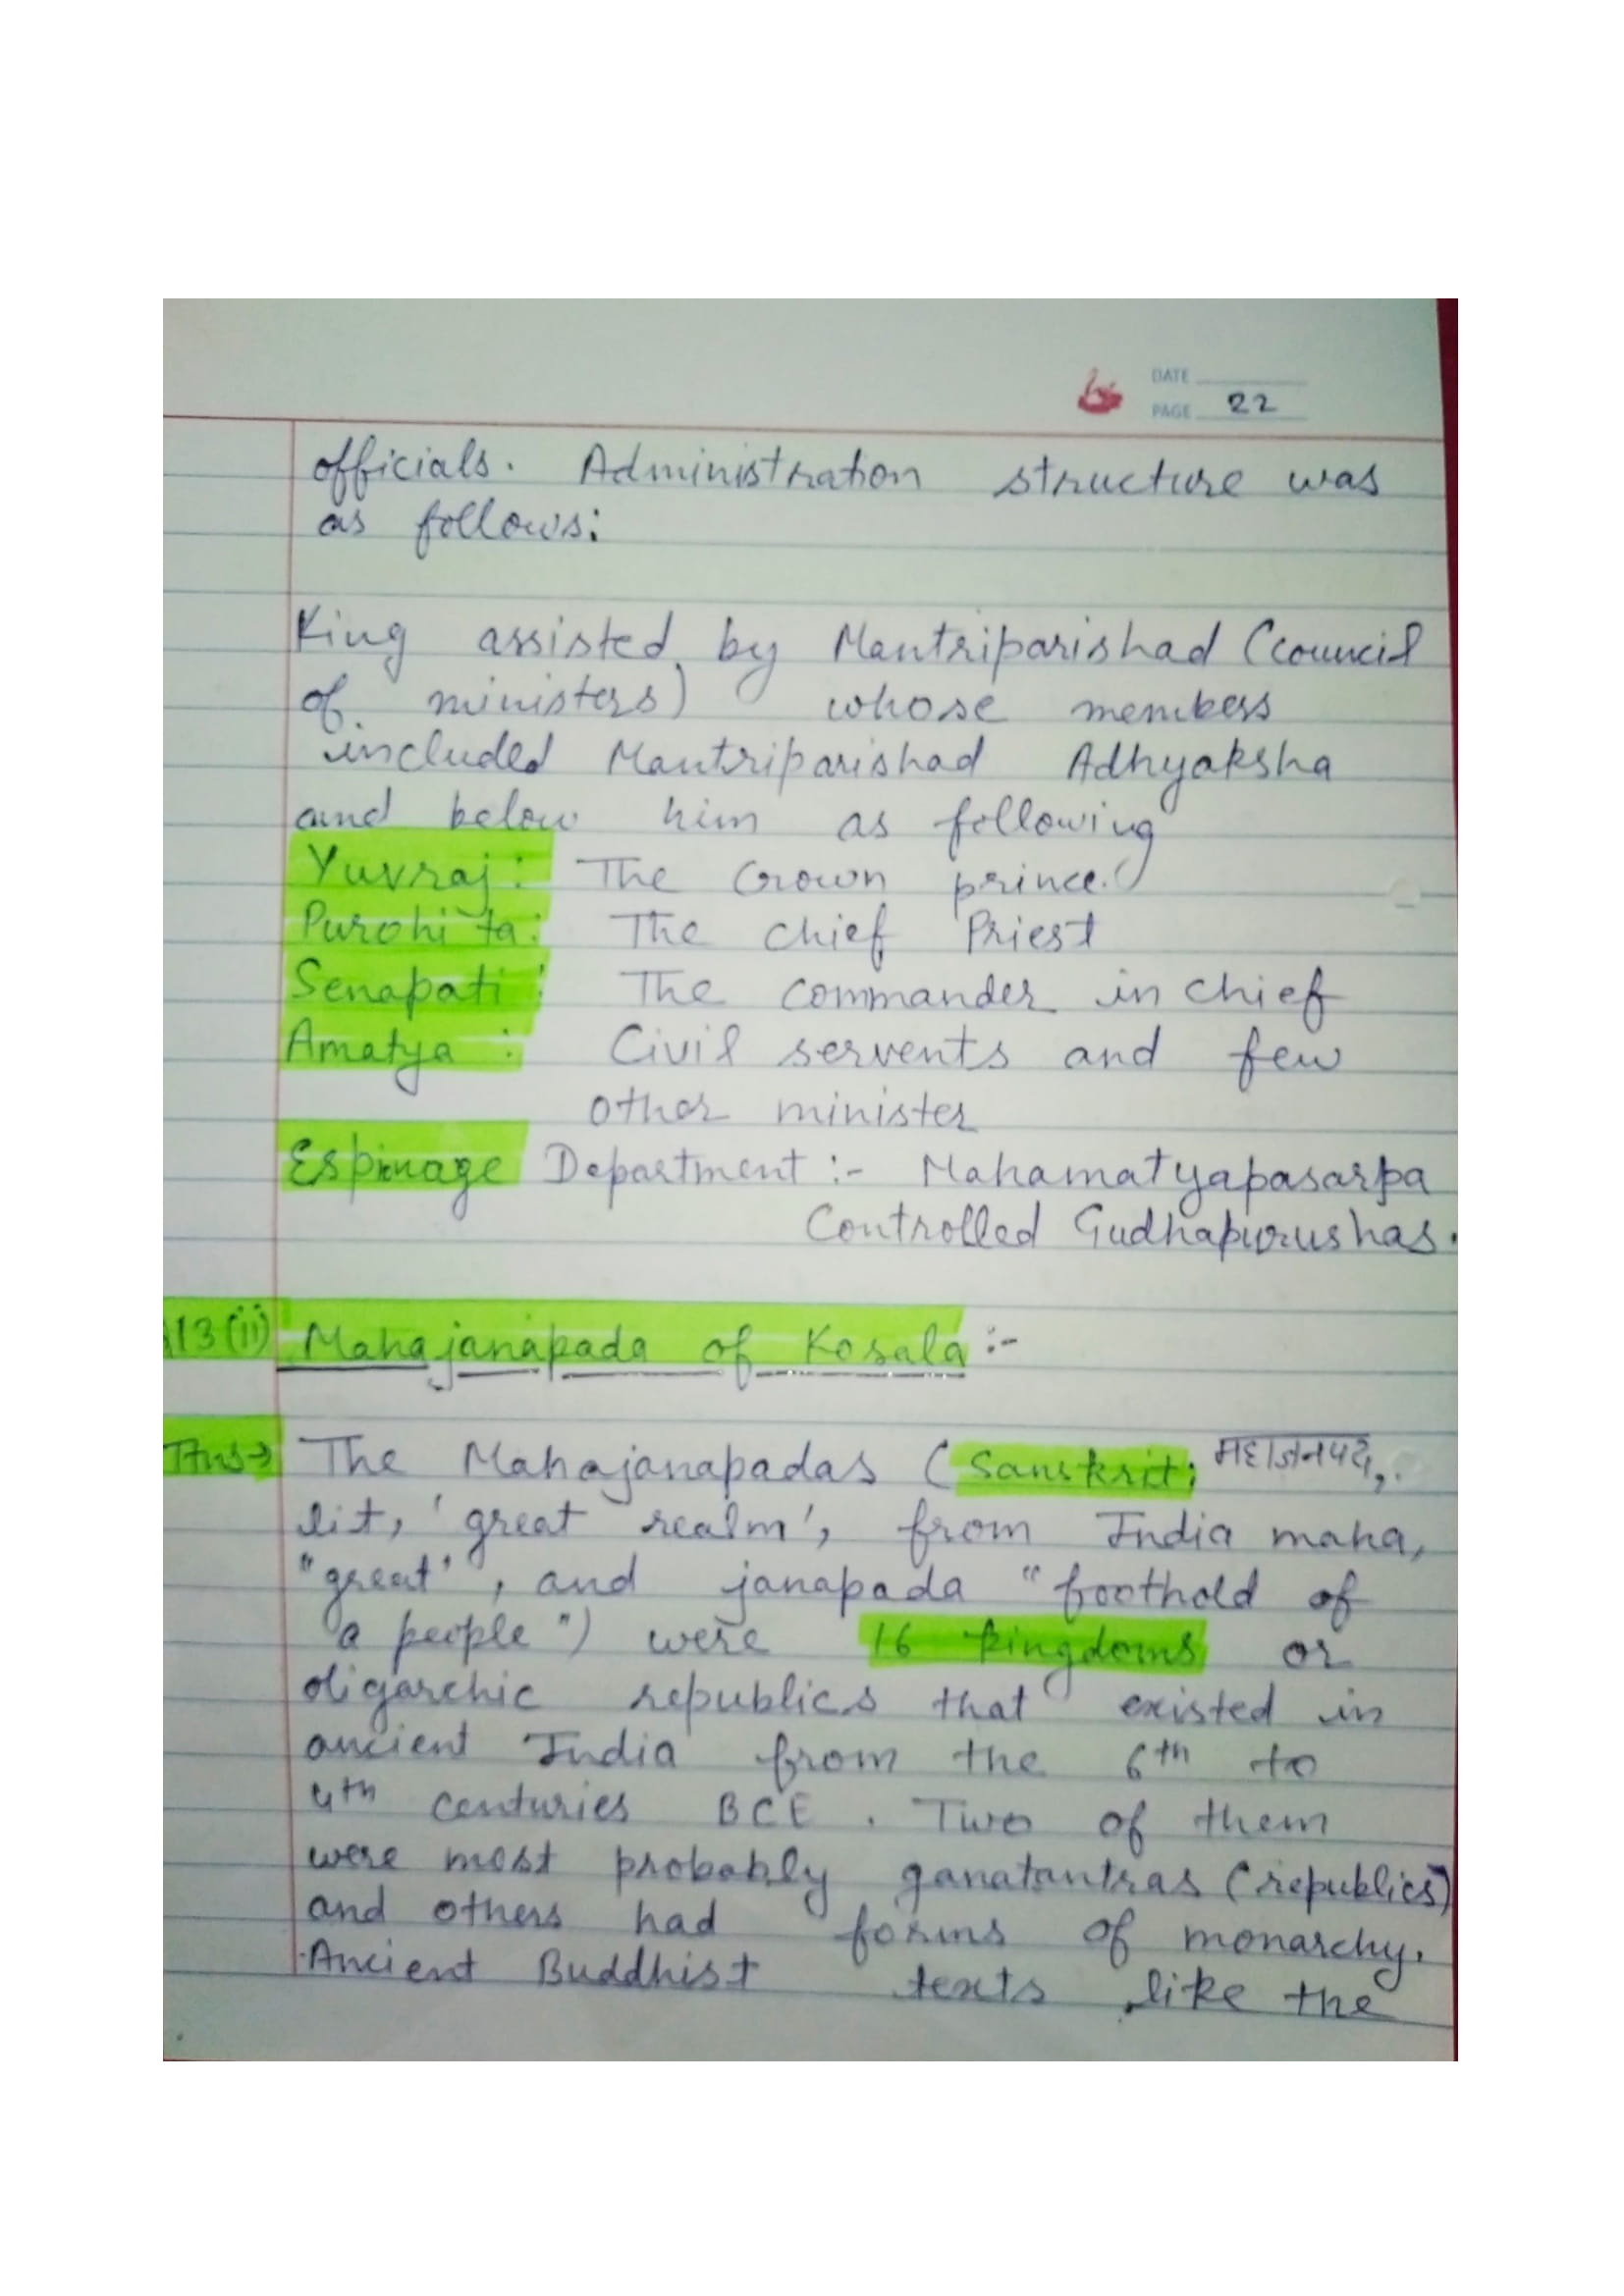 DATE
PAGE 22
officials. Administration structure was
as follows:
King assisted by Mantriparishad (council
of ministers) whose members
included Mantriparishad Adhyaksha
and below him as following
Yuvraj: The Crown prince.
Purohita: The chief Priest
Senapati: The commander in chief
Amatya : Civil servents and few
other minister
Espinage Department :- Mahamatyapasarpa
Controlled Gudhapurushas.
13(ii) Mahajanapada of Kosala :-
Ans→ The Mahajanapadas (Sanskrit; महाजनपद,
lit, 'great realm', from India maha,
"great", and janapada "foothold of
a people") were 16 kingdoms or
oligarchic republics that existed in
ancient India from the 6th to
4th centuries BCE . Two of them
were most probably ganatantras (republics)
and others had forms of monarchy.
Ancient Buddhist texts like the